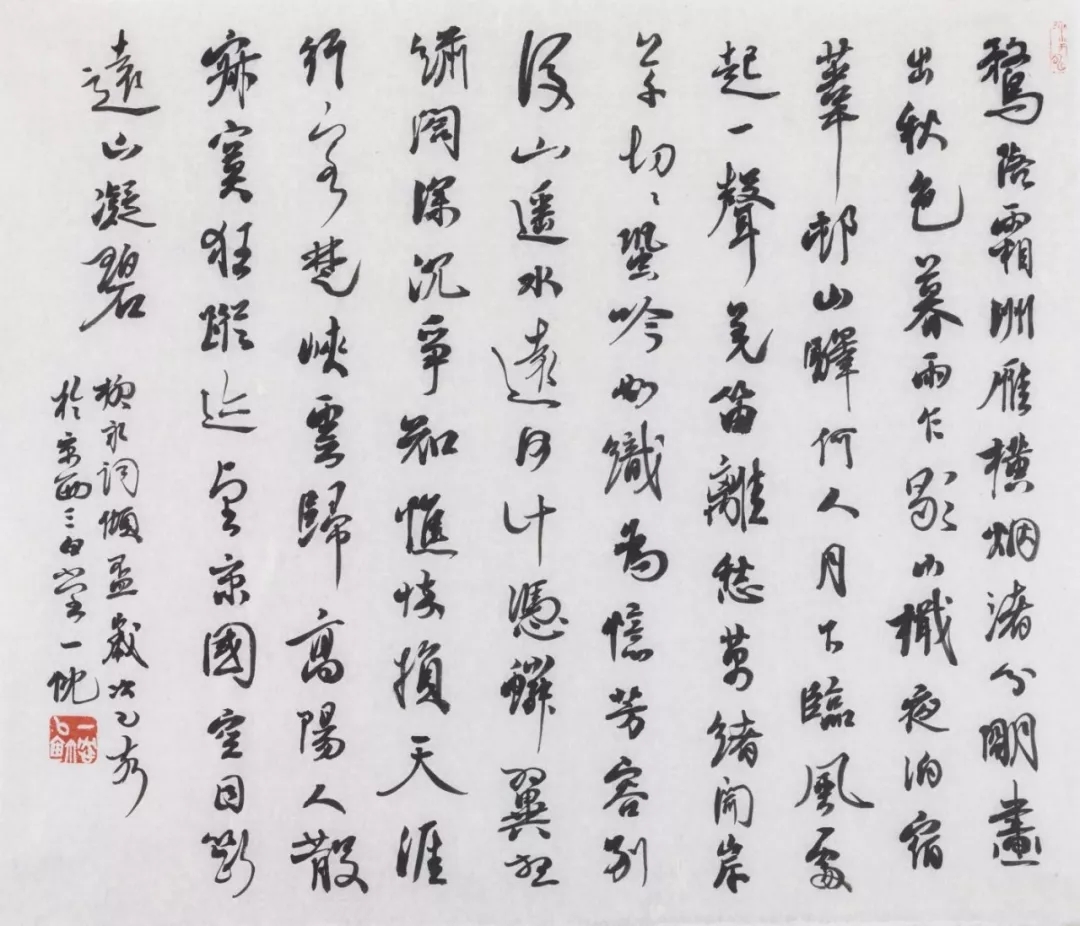 鶩落霜洲雁橫烟渚分明畫
出秋色暮雨乍歇小檝夜泊宿
葦邨山驛何人月下臨風處
起一聲羌笛離愁萬緒聞岸
草切〻蛩吟如織為憶芳容別
後山遥水遠何計憑鱗翼想
繡閣深沉爭知憔悴損天涯
行客楚峽雲歸高陽人散
寂寞狂蹤迹望京國空目斷
遠山凝碧
柳永詞傾盃歲次
於京西三白堂一忱